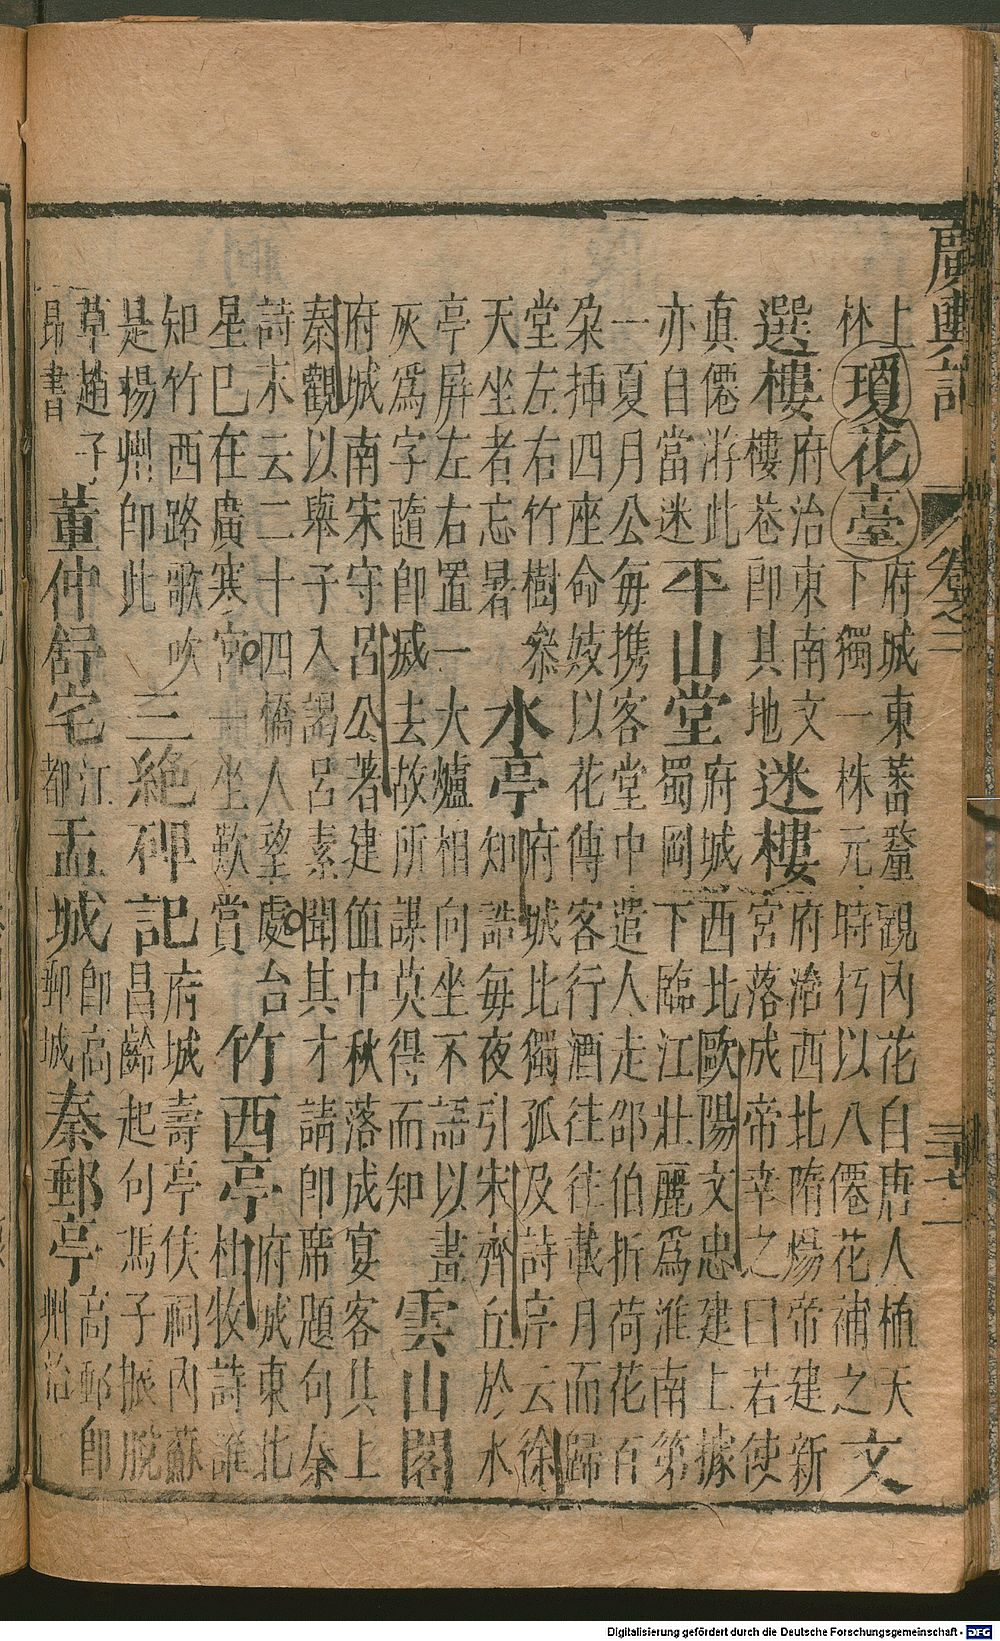 廣輿記 卷之二
上林 瓊花臺 府城東蕃釐觀内花自唐人植天下獨一株元時朽以八僊花補之 文
選樓 府治東南文樓巷即其地 迷樓 府治西北隋煬帝建新宮落成帝幸之曰若使
真僊游此亦自當迷 平山堂 府城西北歐陽文忠建上據蜀岡下臨江壯麗爲淮南第
一夏月公每携客堂中遣人走邵伯折荷花百朶挿四座命妓以花傳客行酒往往載月而歸
堂左右竹樹叅天坐者忘暑 水亭 府城北獨孤及詩序云徐知誥每夜引宋齊丘於水
亭屏左右置一大爐相向坐不語以畫灰爲字隨即滅去故所謀莫得而知 雲山閣
府城南宋守呂公著建値中秋落成宴客其上秦觀以舉子入謁呂素聞其才請即席題句秦
詩末云二十四橋人望處台星已在廣寒宮一坐歎賞 竹西亭 府城東北杜牧詩誰
知竹西路歌吹是揚州即此 三絶碑記 府城壽亭侯祠内蘇昌齡起句馮子振脫
草趙子昂書 董仲舒宅 江都 盂城 即高郵城 秦郵亭 高郵州治 即
Digitalisierung gefördert durch die Deutsche Forschungsgemeinschaft - DFG